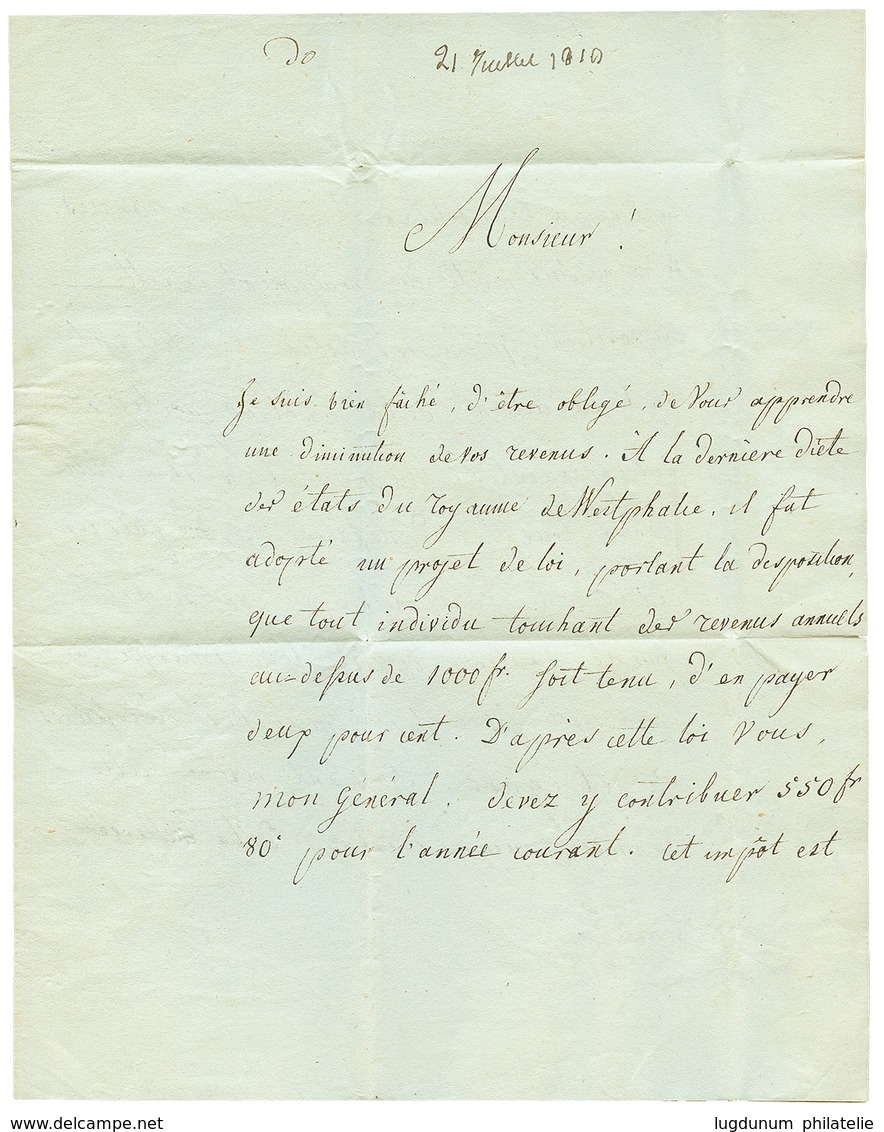 Do 21 Juillet 1810
Monsieur !
Je suis bien fâché, d'être obligé, de Vous apprendre
une diminution de vos revenus. A la dernière diète
des états du royaume de Westphalie, il fut
adopté un projet de loi, portant la disposition,
que tout individu touchant des revenus annuels
au-dessus de 1000 fr. soit tenu, d'en payer
deux pour cent. D'après cette loi Vous,
mon Général, devez y contribuer 550 fr
80c pour l'année courant. cet impôt est
www.delcampe.net lugdunum philatelie